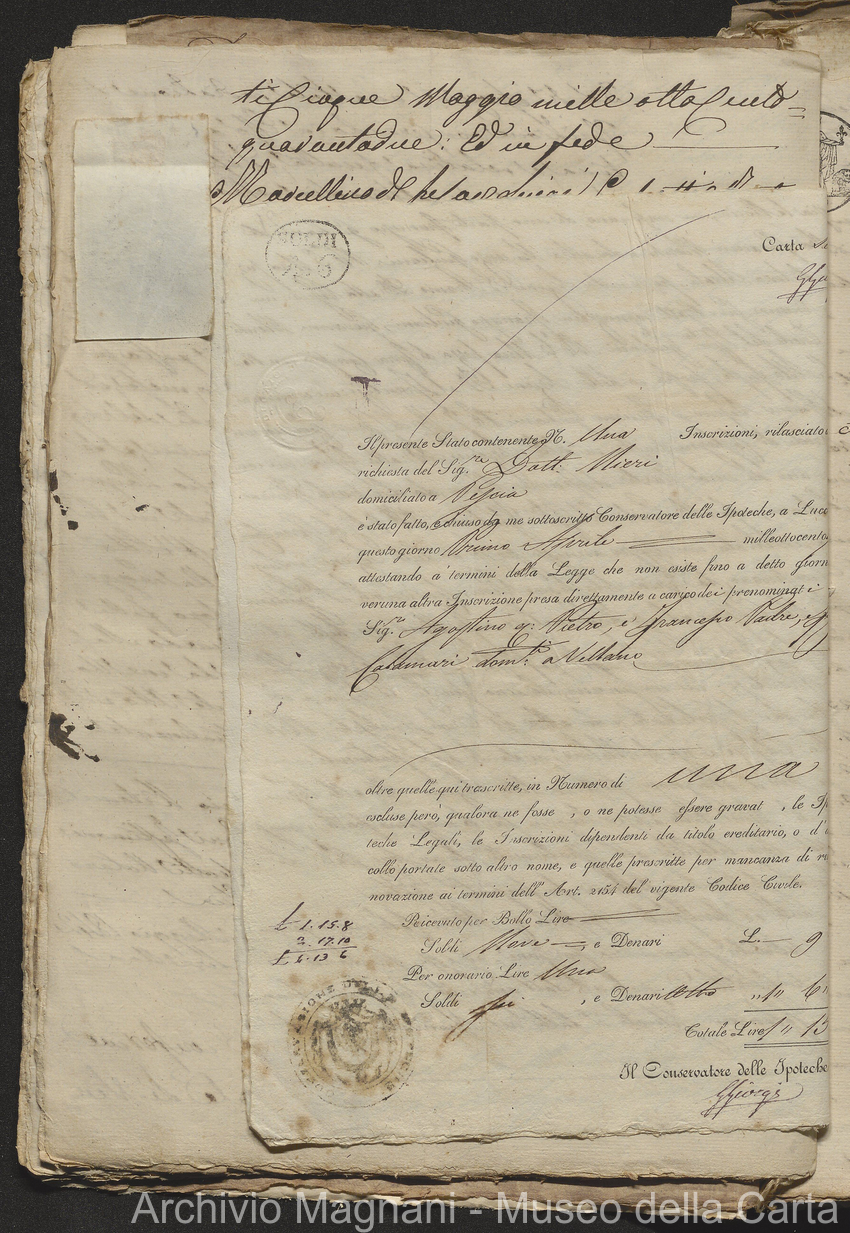 ti Cinque Maggio mille otto Cento=
quarantadue: Ed in fede
SOLDI
Carta
Il presente Stato contenente N. Una Inscrizioni, rilasciato
richiesta del Sig.re Dott: Nieri
domiciliato a Pescia
è stato fatto, e chiuso da me sottoscritto Conservatore delle Ipoteche, a Luc
questo giorno Primo Aprile milleottocento
attestando a' termini della Legge che non esiste fino a detto giorn
veruna altra Inscrizione presa direttamente a carico dei prenominat i
Sig.ri Agostino q: Pietro, e Francesco Padre, e
Calamari dom.ti a Vellano
oltre quelle qui trascritte, in Numero di una
escluse però, qualora ne fosse , o ne potesse essere gravat , le Ip
teche Legali, le Inscrizioni dipendenti da titolo ereditario, o d'
collo portate sotto altro nome, e quelle prescritte per mancanza di ri
novazione ai termini dell' Art. 2154 del vigente Codice Civile.
£ 1.15.8
2.17.10
£ 4.13 6
Peicevuto per Bollo Lire
Soldi Nove , e Denari L. 9
Per onorario Lire Una
Soldi Sei , e Denari Otto " 1 " 6 "
Totale Lire 1 " 15
Il Conservatore delle Ipoteche
GGiorgi
Archivio Magnani - Museo della Carta